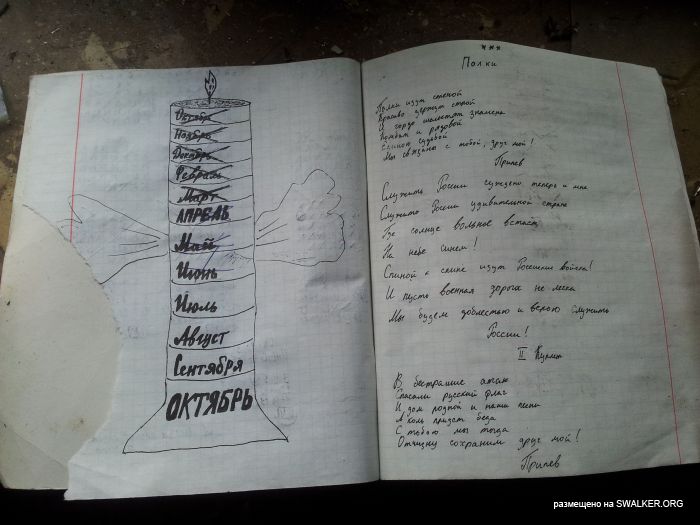 Октябрь
Ноябрь
Декабрь
Февраль
Март
АПРЕЛЬ
Май
Июнь
Июль
Август
Сентября
ОКТЯБРЬ
Полки
Полки идут стеной
Красиво держат строй
И гордо шелестят знамена
Комбат и рядовой
Единой судьбой
Мы связаны с тобой, друг мой!
Припев
Служить России суждено теперь и мне
Служить России удивительной стране
Где солнце вольное встаёт
На небе синем!
Спиной к спине идут Российские войска!
И пусть военная дорога не легка
Мы будем доблестью и верою служить
России!
II Куплет
В бесстрашие атак
Спасали русский флаг
И дом родной и наши песни
А коль придет беда
С тобою мы тогда
Отчизну сохраним друг мой!
Припев
размещено на SWALKER.ORG